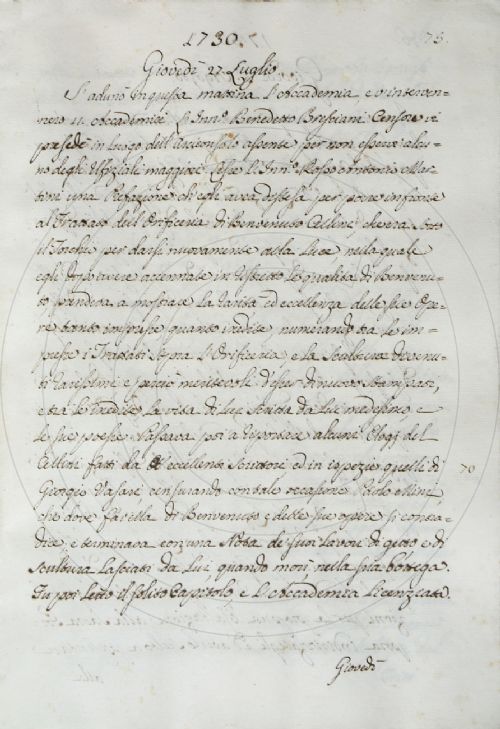 1730. 73.
Giovedì 27 Luglio.
S'adunò in questa mattina l'Accademia e v'interven-
nero 11 Accademici. L'Inn.º Benedetto Bresciani Censore vi
presedè in luogo dell'Arciconsolo assente per non esservi alcu-
no degli Ufiziali maggiori. Lesse l'Inn.º Rosso Antonio Mar-
tini una Prefazione ch'egli avea distesa per porre in fronte
al Trattato dell'Orificeria di Benvenuto Cellini che era sotto
il Torchio per darsi nuovamente alla Luce nella quale
egli dopo avere accennate in ristretto le qualità di Benvenu-
to prendeva a mostrare la rarità ed eccellenza delle sue Ope-
re tanto impresse quanto inedite, numerando tra le im-
presse i Trattati sopra l'Orificeria e la Scultura divenu-
ti rarissimi e perciò meritevoli d'esser di nuovo stampati,
e tra le inedite la vita di lui scritta da lui medesimo, e
le sue poesie. Passava poi a riportare alcuni Elogj del
Cellini fatti da eccellenti Scrittori ed in ispezie quelli di
70
Giorgio Vasari censurando con tale occasione Paolo Mini,
che dove favella di Benvenuto e delle sue opere si contra-
dice, e terminava con una Nota de' suoi lavori di getto e di
Scultura lasciati da lui, quando morì, nella sua bottega.
Fu poi letto il solito Capitolo e l'Accademia licenziata.
Giovedì